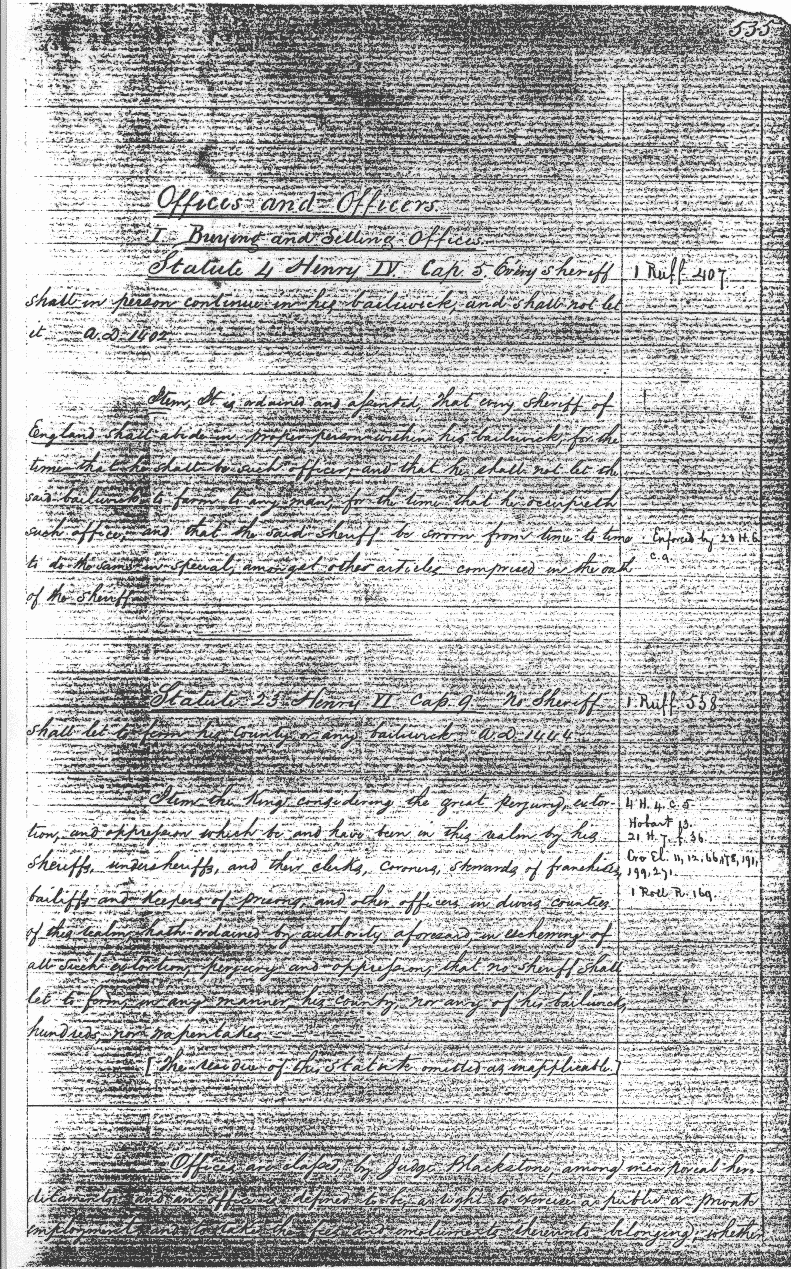 535
Offices and Officers.
I Buying and Selling Offices.
Statute 4 Henry IV. Cap. 5. Every Sheriff
1 Ruff. 407.
shall in person continue in his bailiwick, and shall not let
it A.D. 1402
Item, It is ordained and assented, that every sheriff of
England shall abide in proper person within his bailiwick, for the
time that he shall be such officer; and that he shall not let the
said bailiwick to farm to any man, for the time that he occupieth
such office; and that the said sheriff be sworn from time to time
Enforced by 23 H. 6.
c. 9.
to do the same in special, amongst other articles comprised in the oath
of the sheriff.
Statute 23 Henry VI Cap. 9. No Sheriff
1 Ruff. 538.
shall let to ferm his County or any bailiwick A.D. 1444
Item the King considering the great perjury, extor-
4 H. 4. c. 5.
Hobart 13.
tion, and oppression which be and have been in this realm by his
21 H. 7. f. 36.
sheriffs, undersheriffs, and their clerks, coroners, stewards of franchises,
Cro El. 11, 12, 66, 178, 191,
199, 271.
bailiffs and keepers of prisons, and other officers in divers counties
1 Roll R. 169.
of this realm, hath ordained by authority aforesaid, in eschewing of
all such extortion, perjury and oppression, that no sheriff shall
let to ferm, in any manner, his county, nor any of his bailiwicks,
hundreds, nor wapentakes
[The residue of this statute omitted as inapplicable.]
Offices are classed, by Judge Blackstone, among incorporeal here-
ditaments, and an office is defined to be, a right to exercise a public or private
employment, and to take the fees and emoluments thereunto belonging, whether